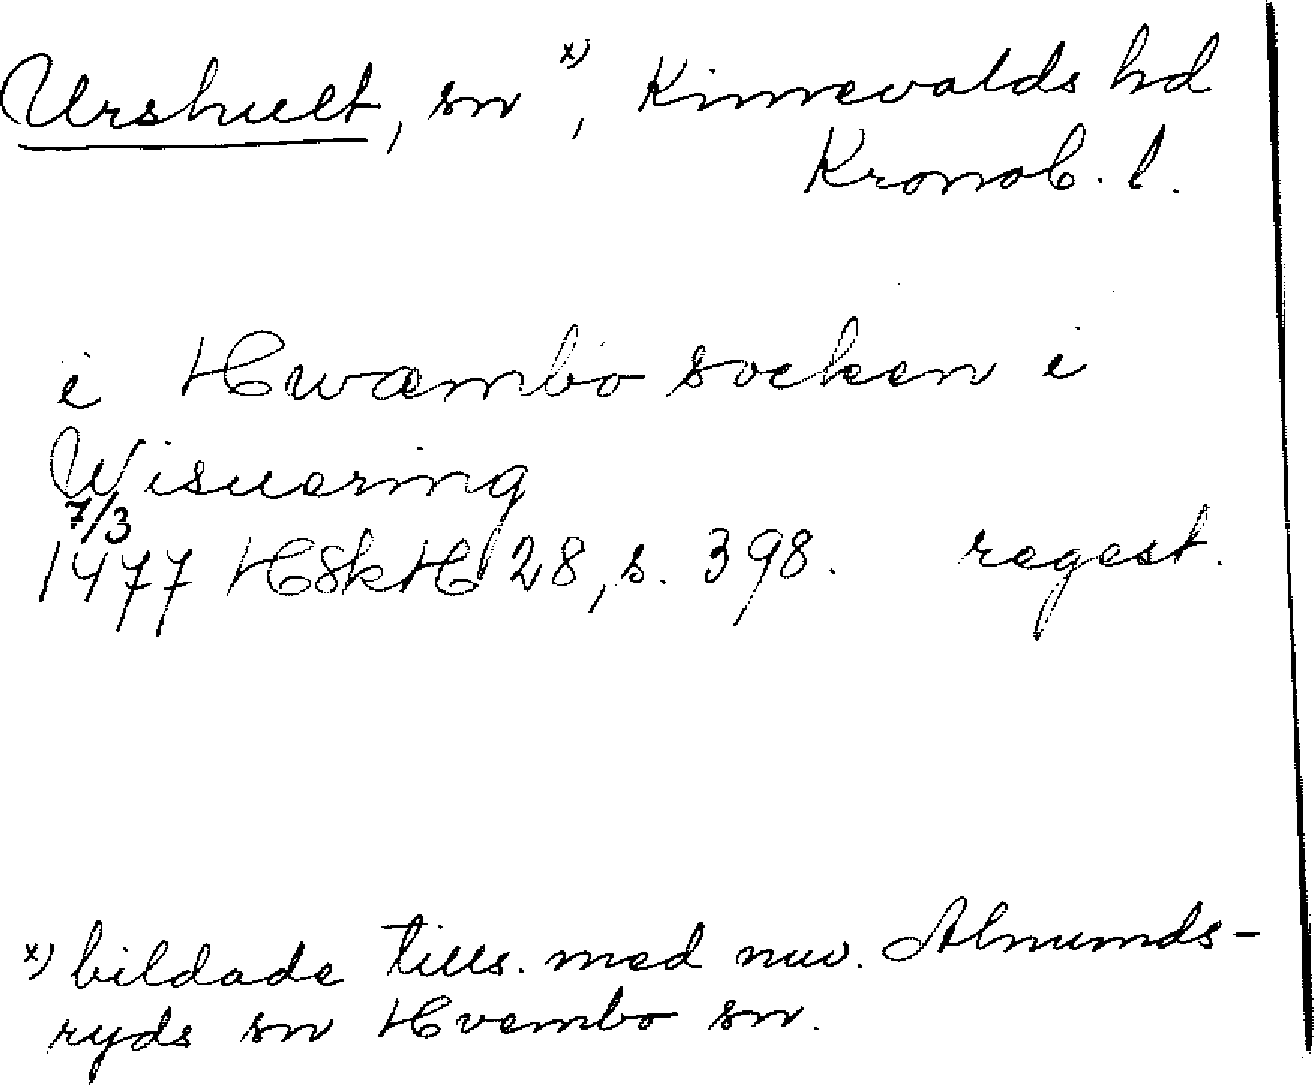 Urshult, sn x), Kinnevalds hd
Kronob. l.
i Hwæmbo socken i
Wisuering
7/3
1477 HSkH 28, s. 398. regest.
x) bildade tills. med nuv. Almunds-
ryds sn Hvembo sn.